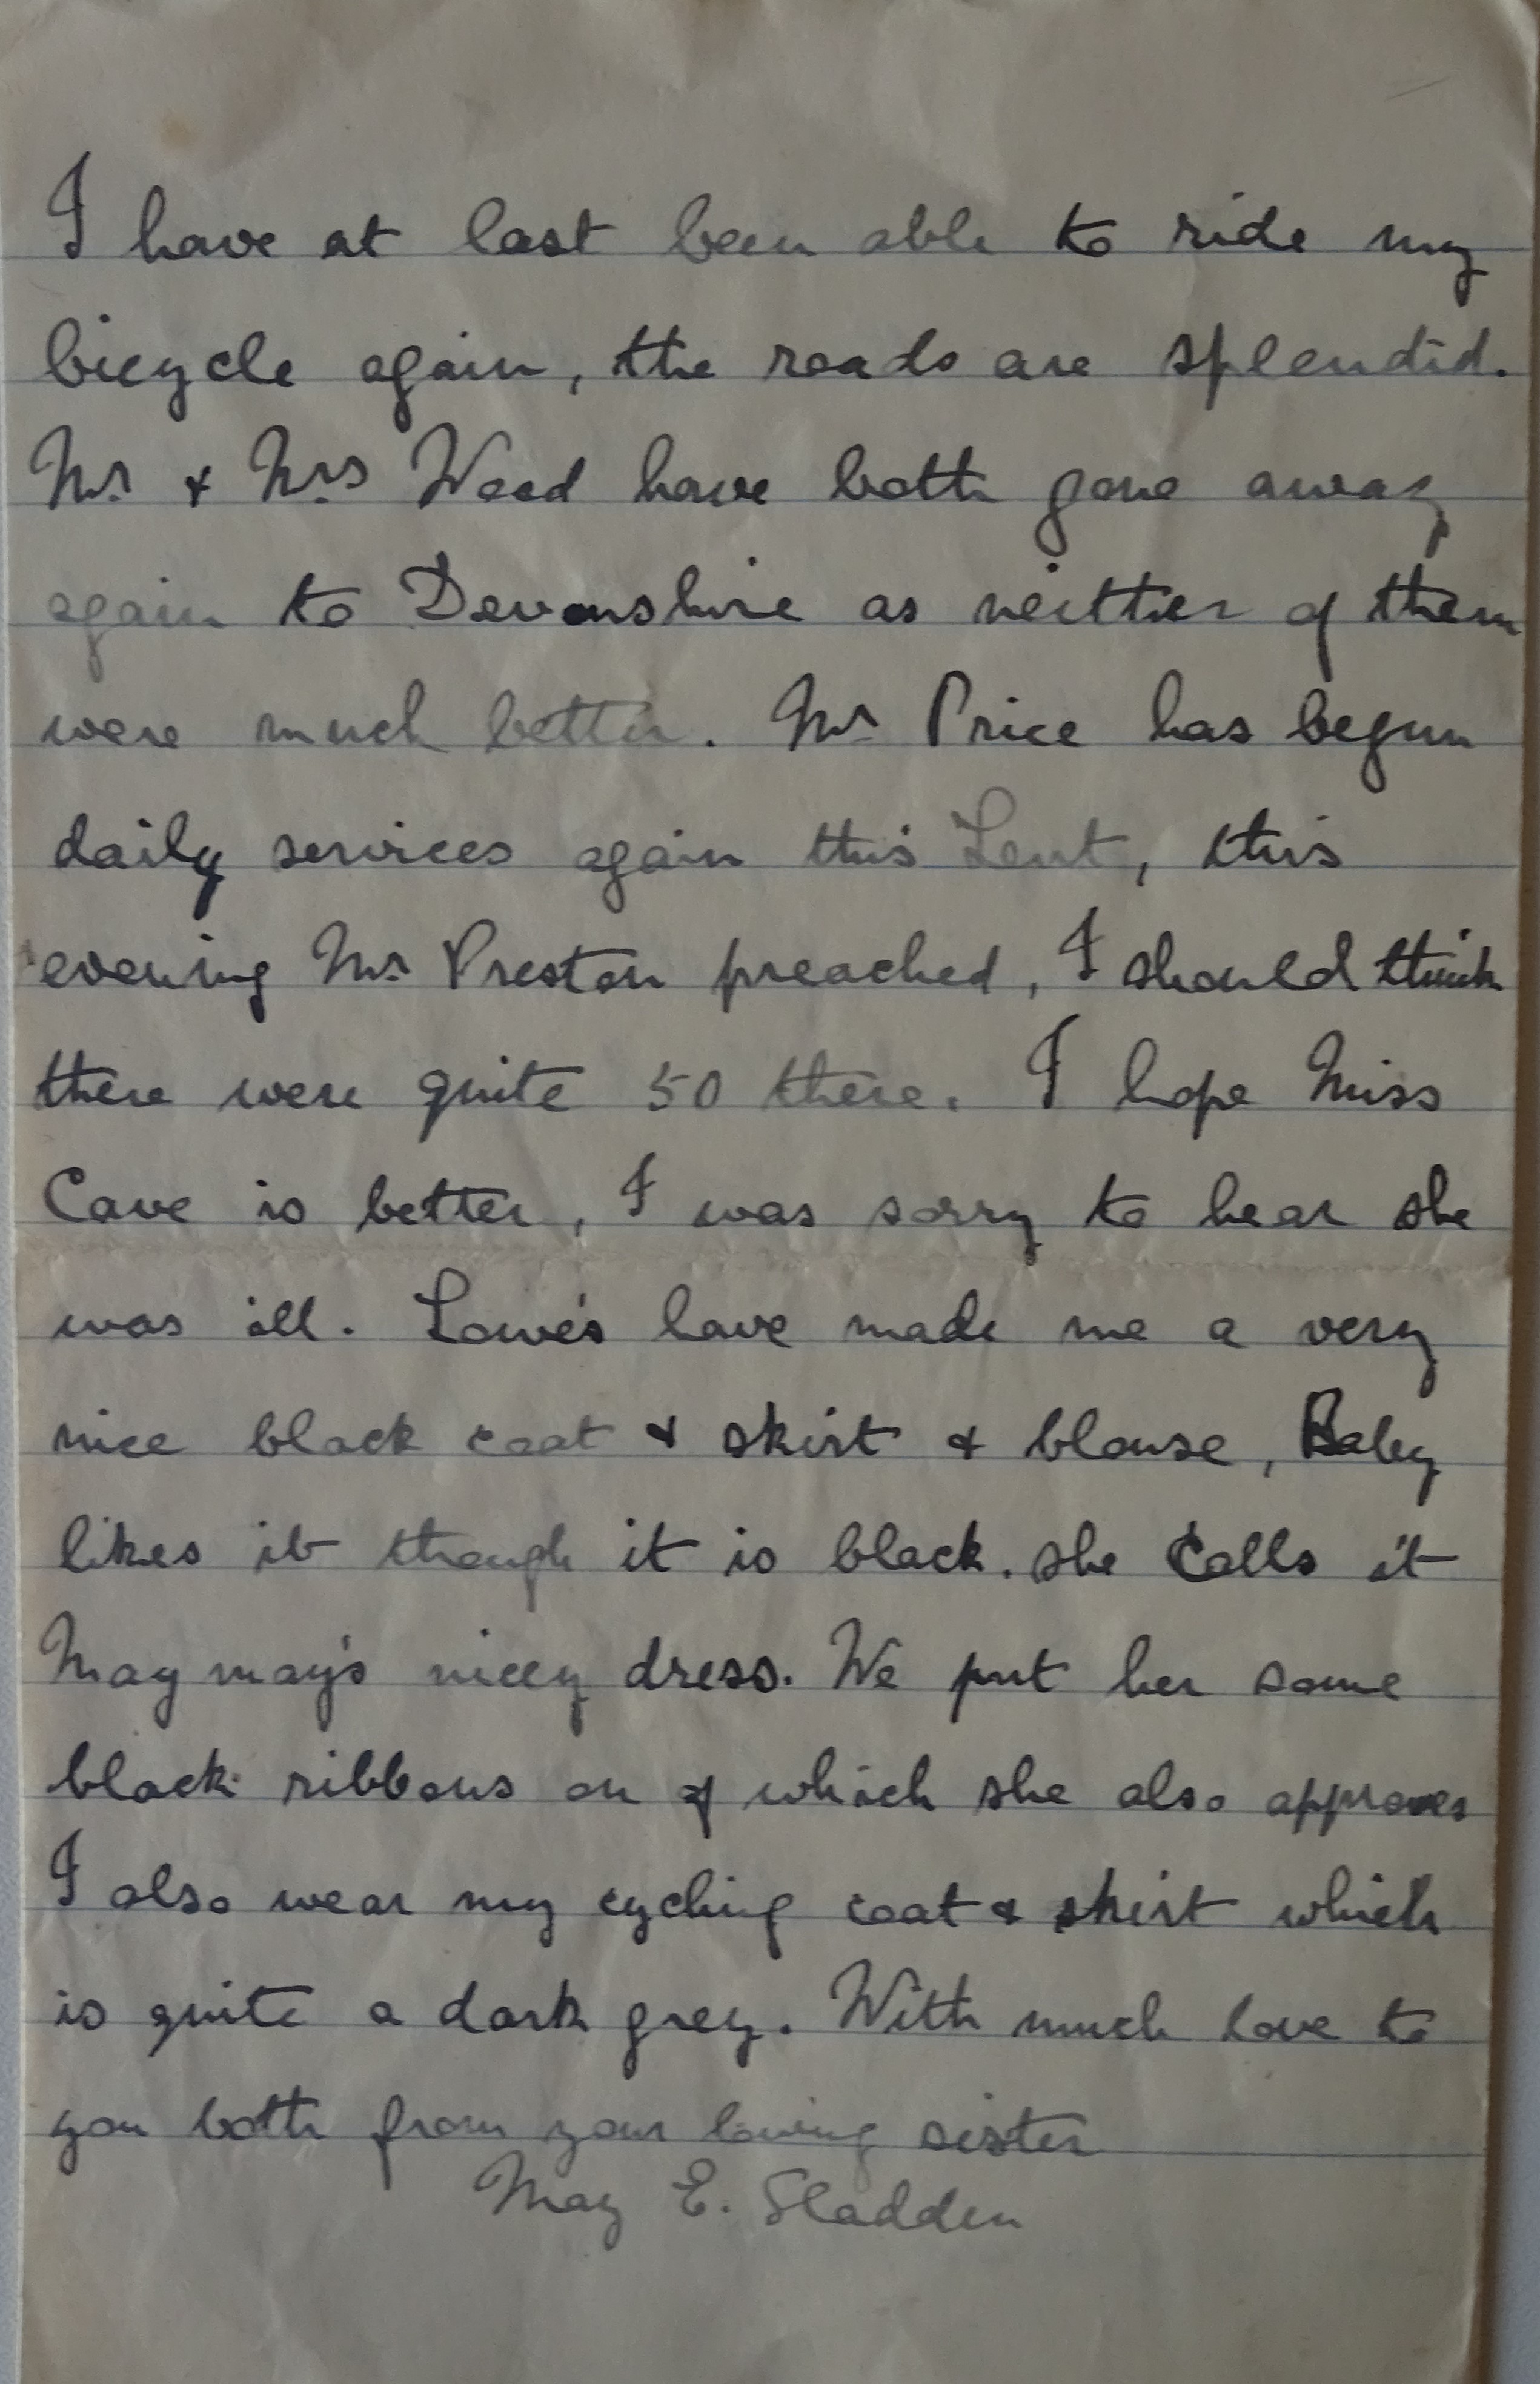 I have at last been able to ride my
bicycle again, the roads are splendid.
Mr. & Mrs Wood have both gone away
again to Devonshire as neither of them
were much better. Mr Price has begun
daily services again this Lent, this
evening Mr Preston preached, I should think
there were quite 50 there. I hope Miss
Cave is better, I was sorry to hear she
was ill. Lowe's have made me a very
nice black coat & skirt & blouse, Baby
likes it though it is black. she calls it
May may's nicey dress. We put her some
black ribbons on of which she also approves
I also wear my cycling coat & skirt which
is quite a dark grey. With much love to
you both from your loving sister
May E. Sladden